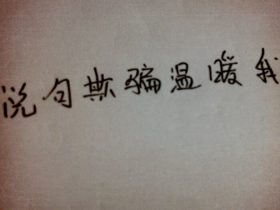 说句欺骗温暖我